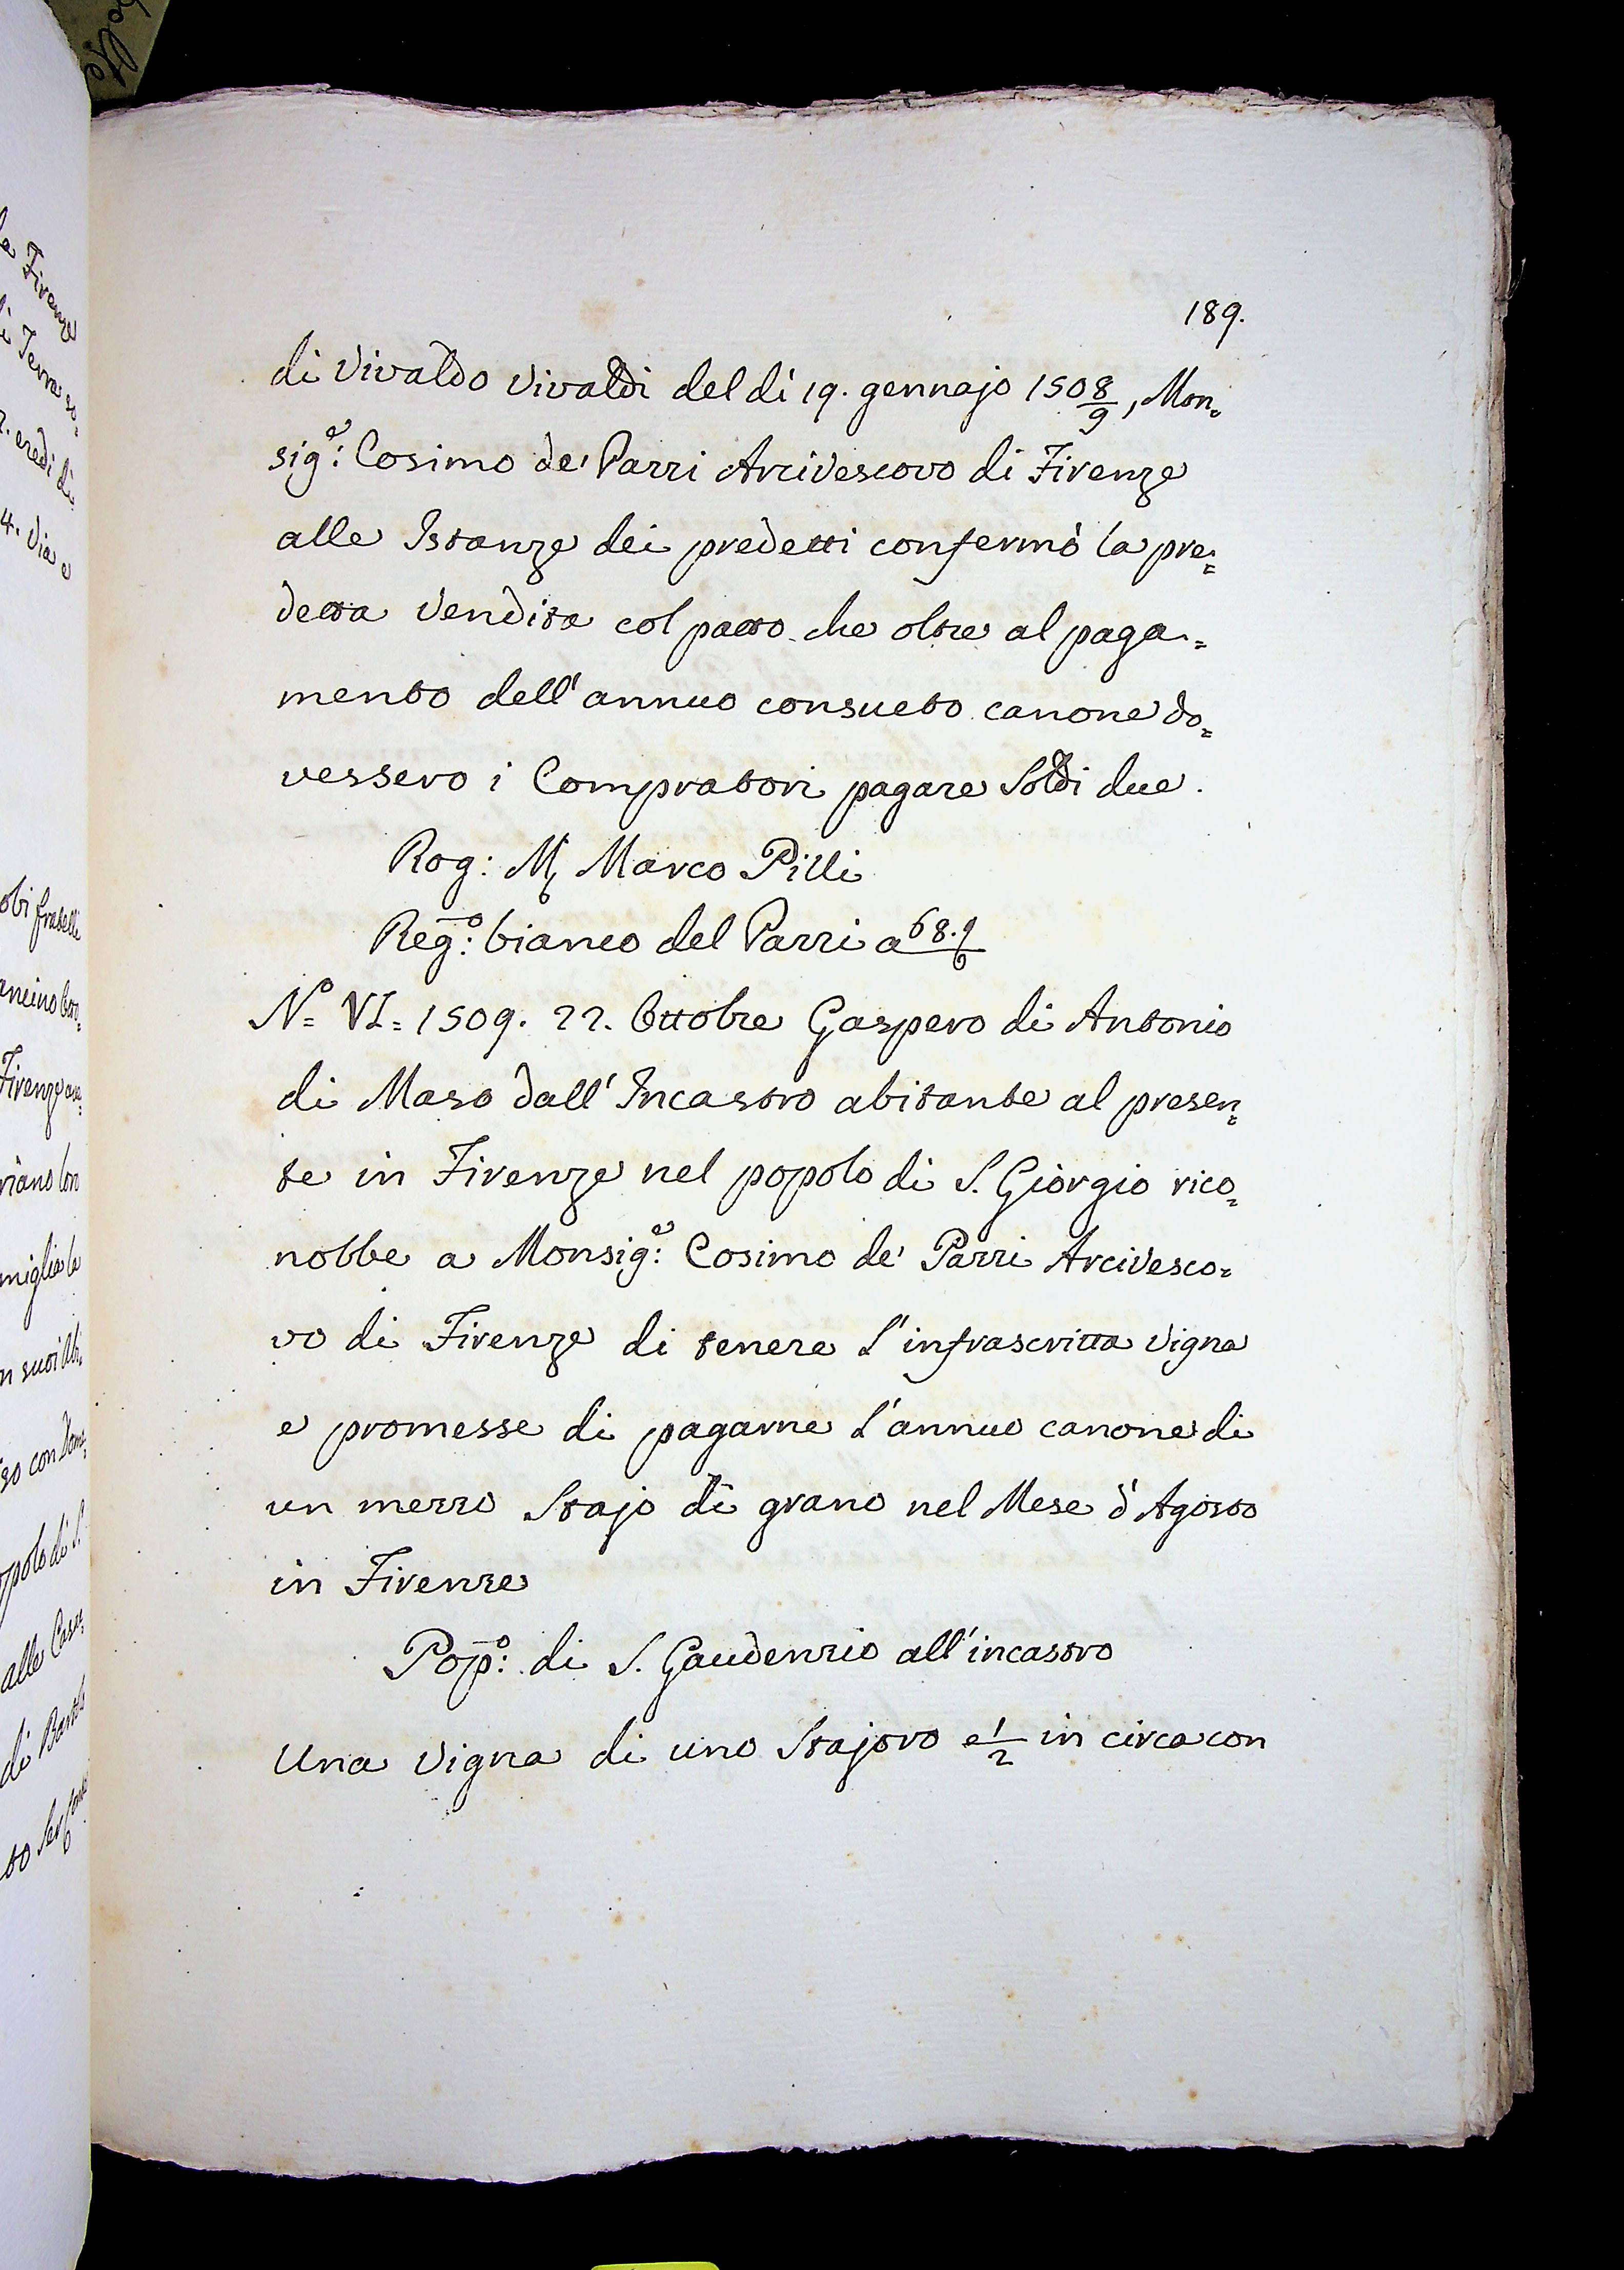 189.
di Vivaldo Vivaldi del dì 19. gennajo 1508/9, Mon=
sig:e Cosimo de' Pazzi Arcivescovo di Firenze
alle Istanze dei predetti confermò la pre=
detta Vendita col patto che oltre al paga=
mento dell'annuo consueto canone do=
vessero i Compratori pagare Soldi due.
Rog: Mr Marco Pilli
Reg:o bianco del Pazzi a 68.
No= VI= 1509. 22. Ottobre Gaspero di Antonio
di Maso dall'Incastro abitante al presen=
te in Firenze nel popolo di S. Giorgio rico=
nobbe a Monsig:e Cosimo de' Pazzi Arcivesco=
vo di Firenze di tenere l'infrascritta Vigna
e promesse di pagarne l'annuo canone di
un mezzo Stajo di grano nel Mese d'Agosto
in Firenze
Pop:o di S. Gaudenzio all'incastro
Una Vigna di uno Stajoro e 1/2 in circa con
la Firenze
Terra so=
2. eredi di
4. Via e
obi fratelli
Firenze
miglia la
n suoi
so con
opolo di S.
alle Case
di
to Ser